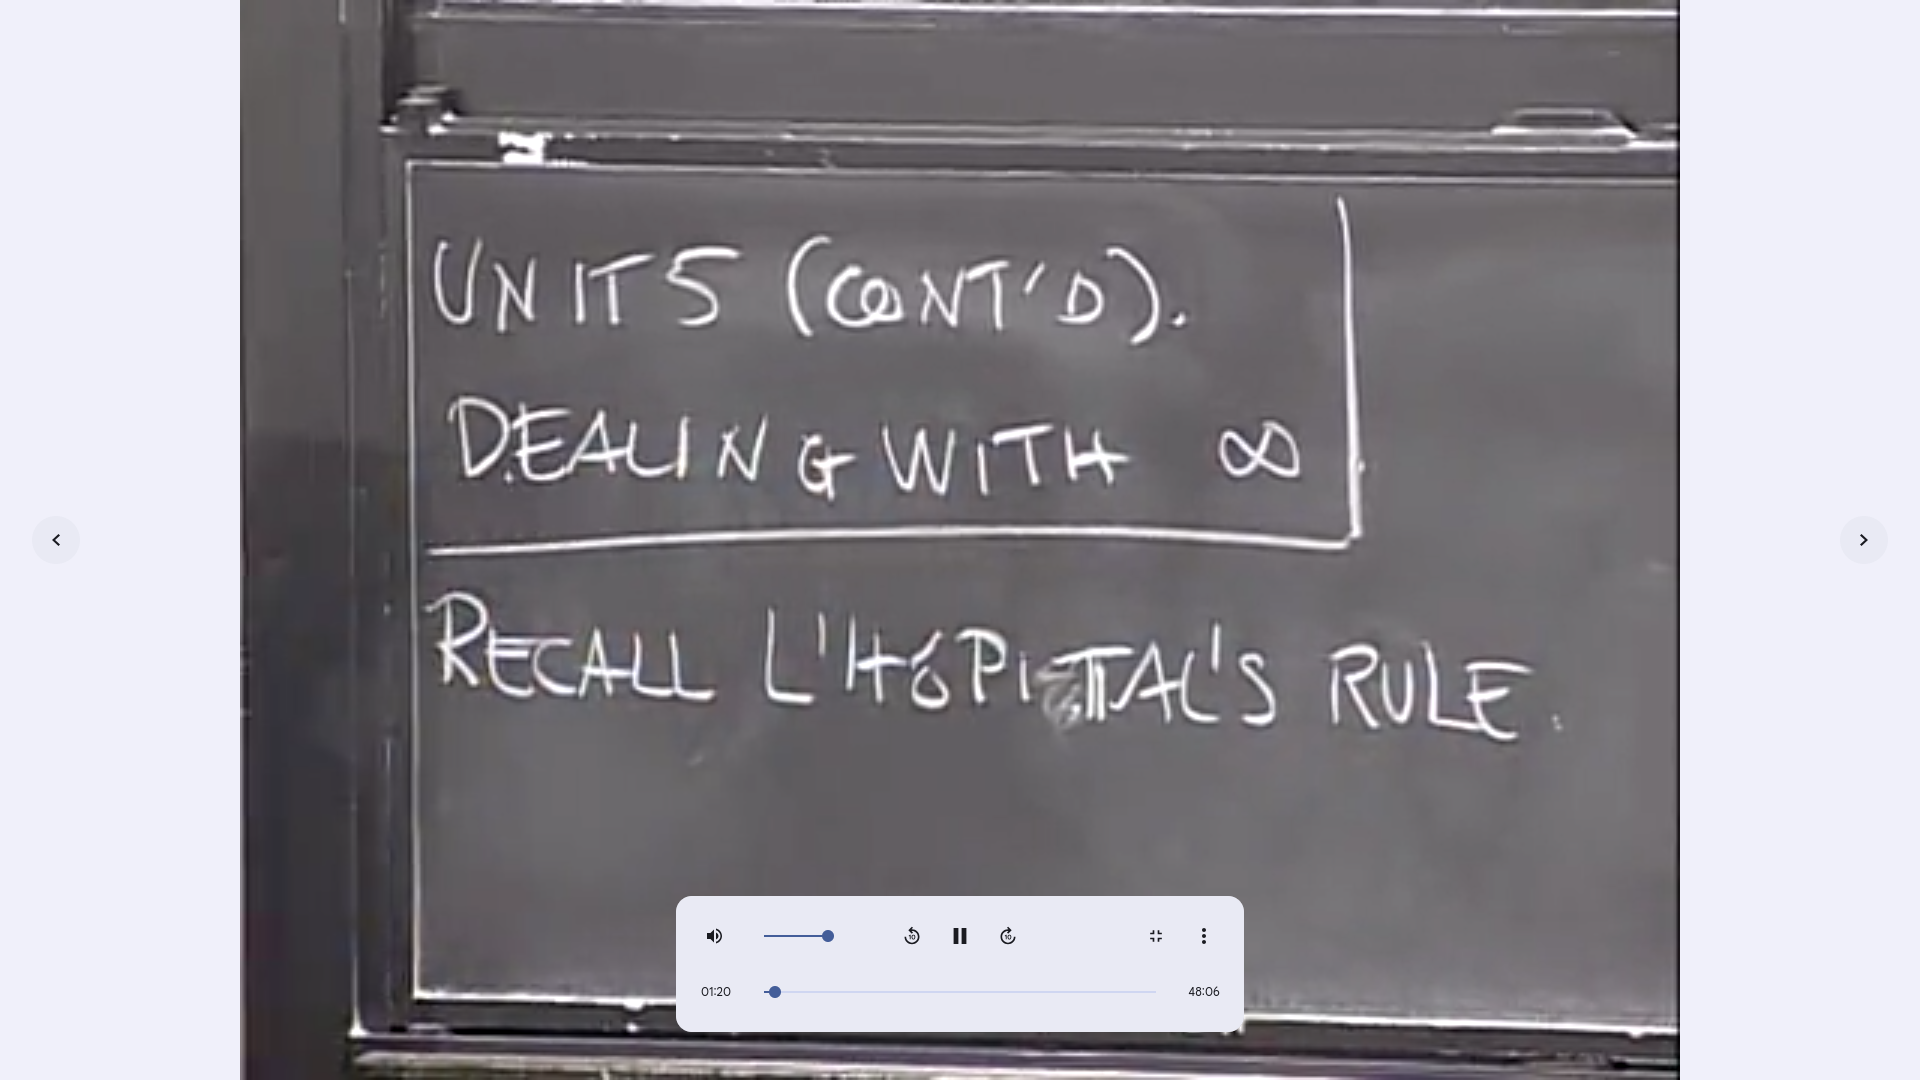 UNIT 5 (CONT'D).
DEALING WITH ∞
RECALL L'HÔPITAL'S RULE.
10
10
01:20
48:06